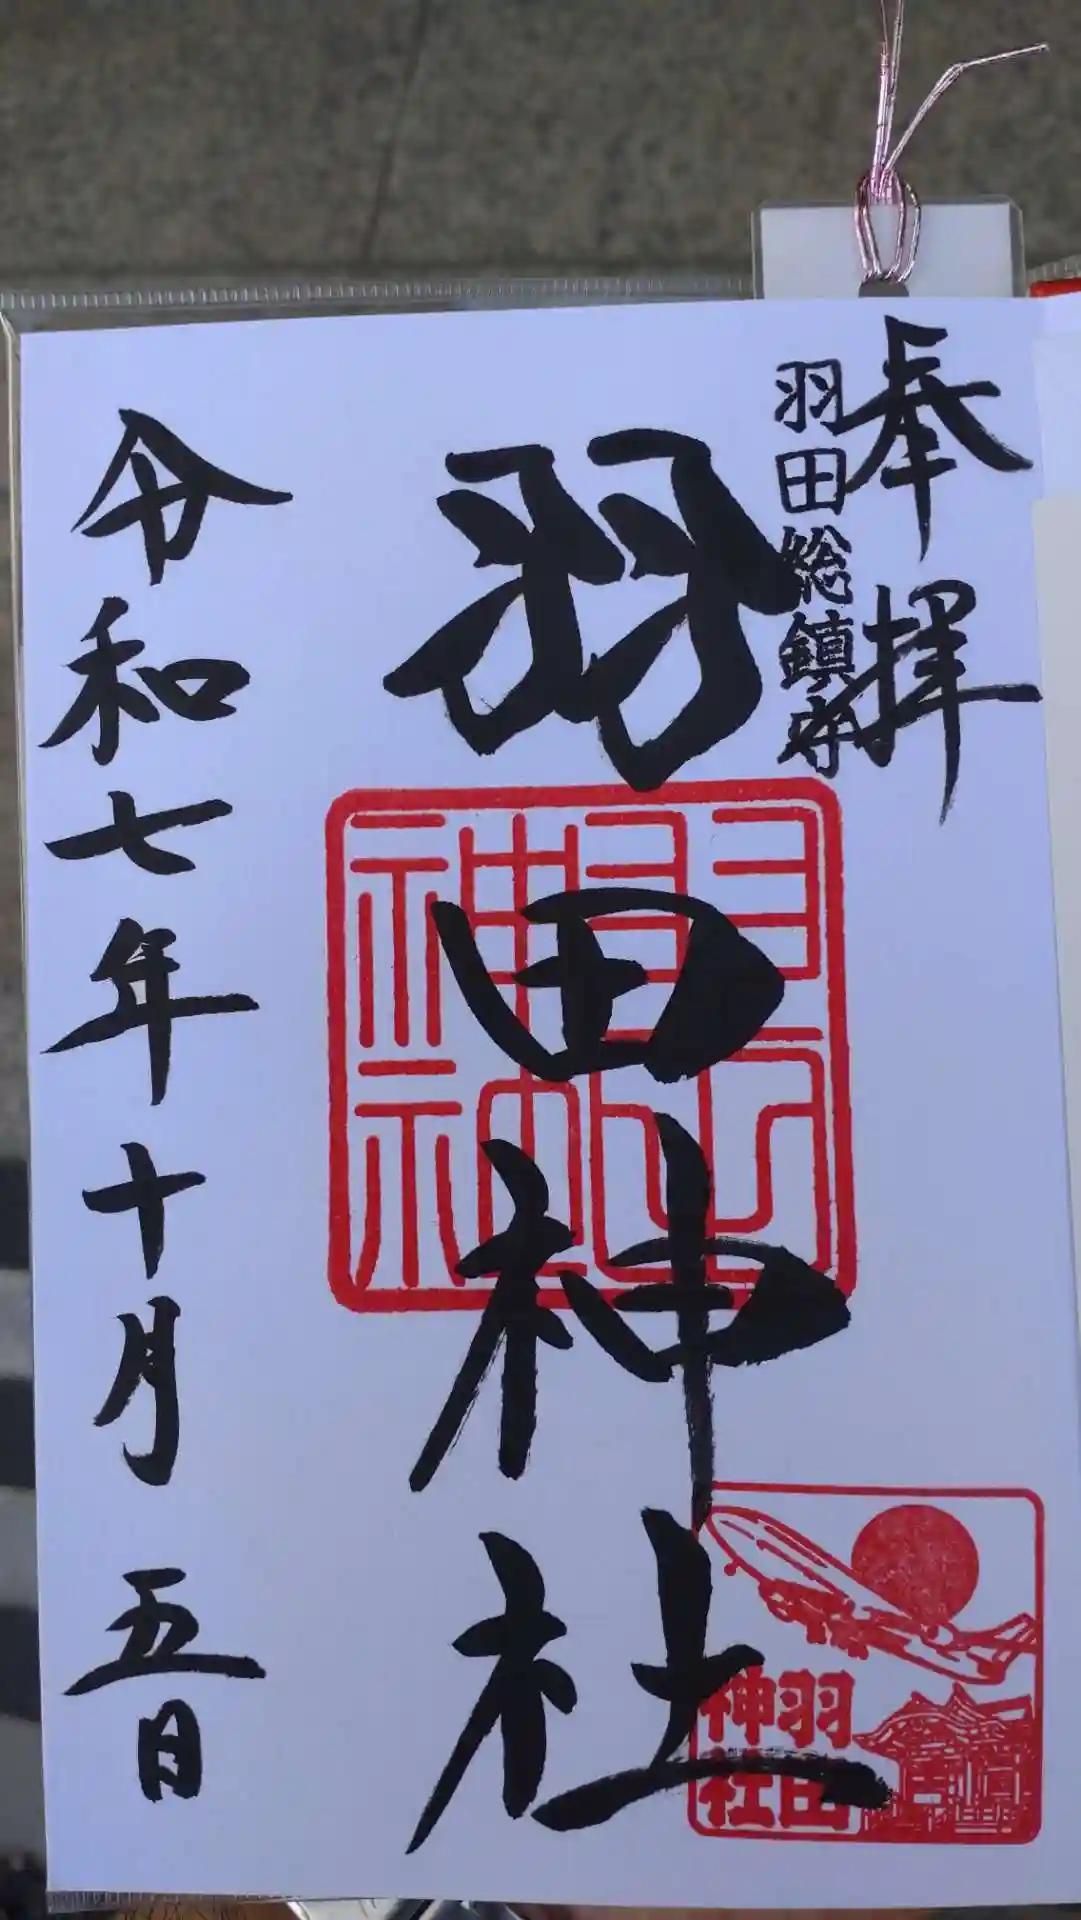 奉拝
羽田総鎮守
羽田神社
羽田神社
羽田
神社
令和七年十月五日